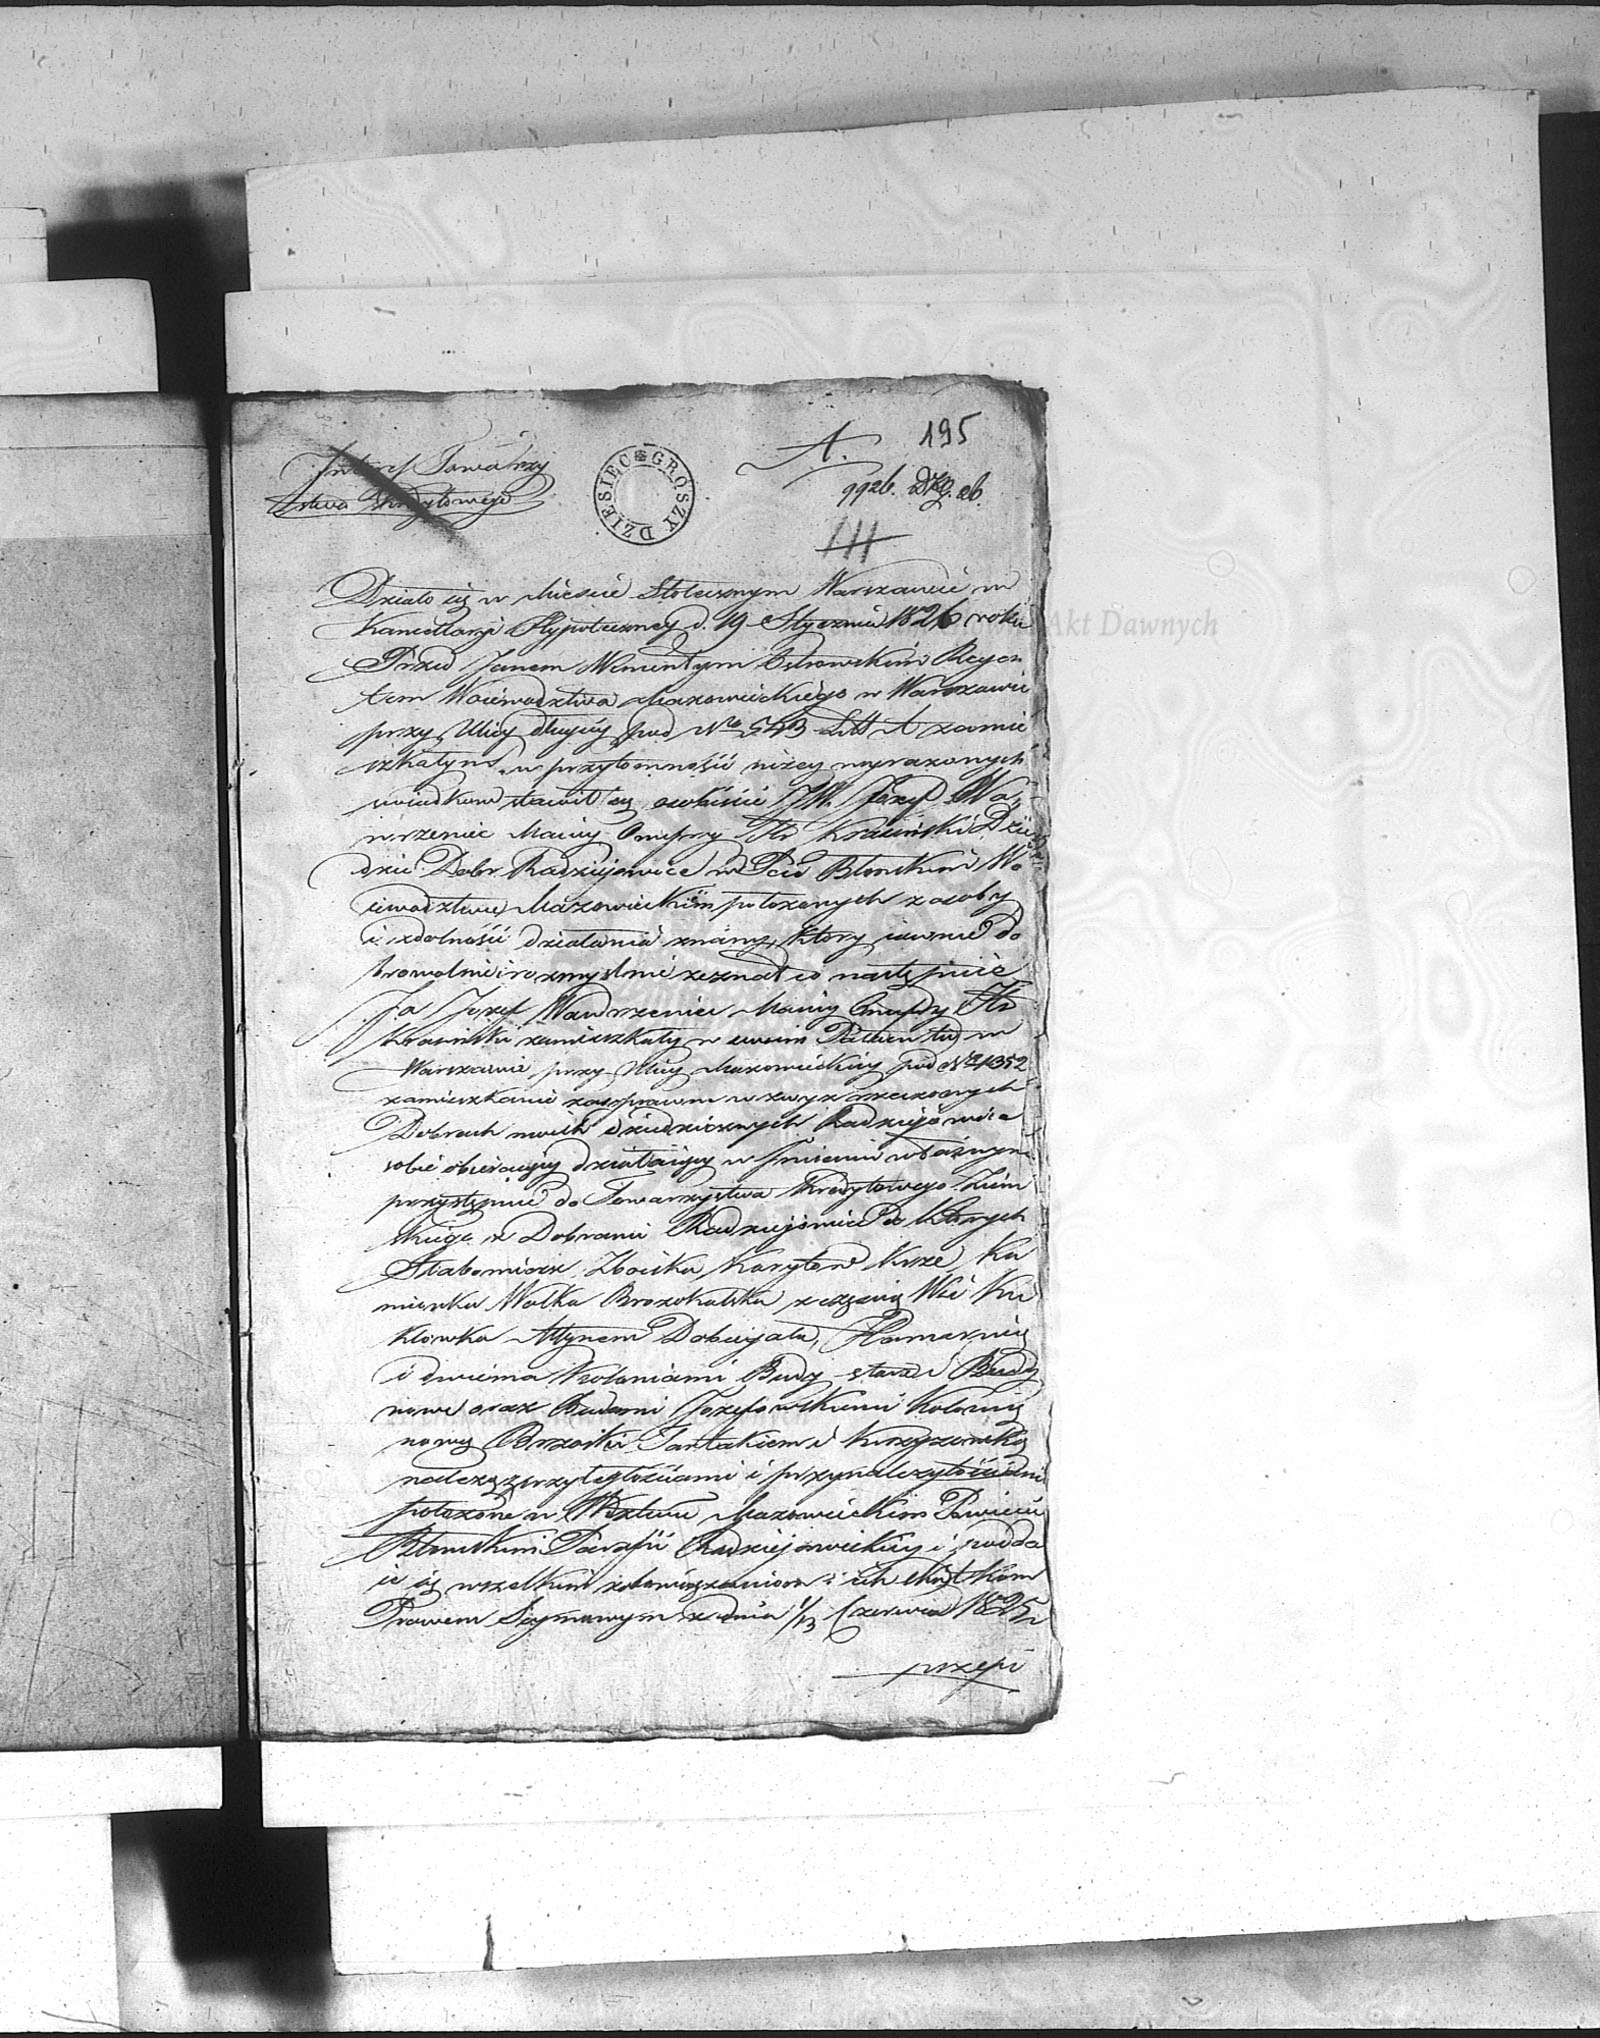 A. 195
Interes Towarzy
stwa Kredytowego
DZIESIĘC GROSZY
992b.
III
Działo się w Mieście Stołecznym Warszawie w
Kancellaryi Hypoteczney d. 19 Stycznia 1826 roku
Przed Janem Wincentym Ostrowskim Regen
tem Woiewodztwa Mazowieckiego w Warszawie
przy Ulicy długiey pod Nro 543 Litt A zamie
szkałym w przytomności niżey wyrażonych
swiadkow stawił się osobiście JW. Józef Wa
wrzeniec Maciey Onufry Hr Krasiński Dzie
dzic Dobr Radziejowice w Pcie Błonskim Wo
iewodztwie Mazowieckim położonych z osoby
i zdolności działania znany, który iawnie do
browolnie i rozmyslnie zeznał co następuie
Ja Jozef Wawrzeniec Maciey Onufry Hr
Krasinski zamieszkały w swoim Pałacu tu w
Warszawie przy Ulicy Mazowieckiey pod Nro 1352
zamieszkanie zas prawne w zwyż rzeczonych
Dobrach moich dziedzicznych Radziejowice
sobie obieraiący działaiący w Imieniu własnym
przystępuie do Towarzystwa Kredytowego Ziem
skiego z Dobrami Radziejowice do których
Słabomierz Zboiska Korytow Krze, Ka
mionka Wolka z częścią Wsi Ku
klowka Młynem Dobiegała, Hamernią
i dwiema Koloniami Budy stare i Budy
nowe oraz Budami Jozefowskiemi Kolonią
nowy Brzoski Tartakiem i
należą z przyległościami i przynależytościami
położone w Wdztwie Mazowieckim Powiecie
Błonskim Parafii Radziejowickiey i podda
ie się wszelkim zobowiązaniom i ich skutkom
Prawem Seymowym z dnia 1/13 Czerwca 1825 r
przepi
Akt Dawnych